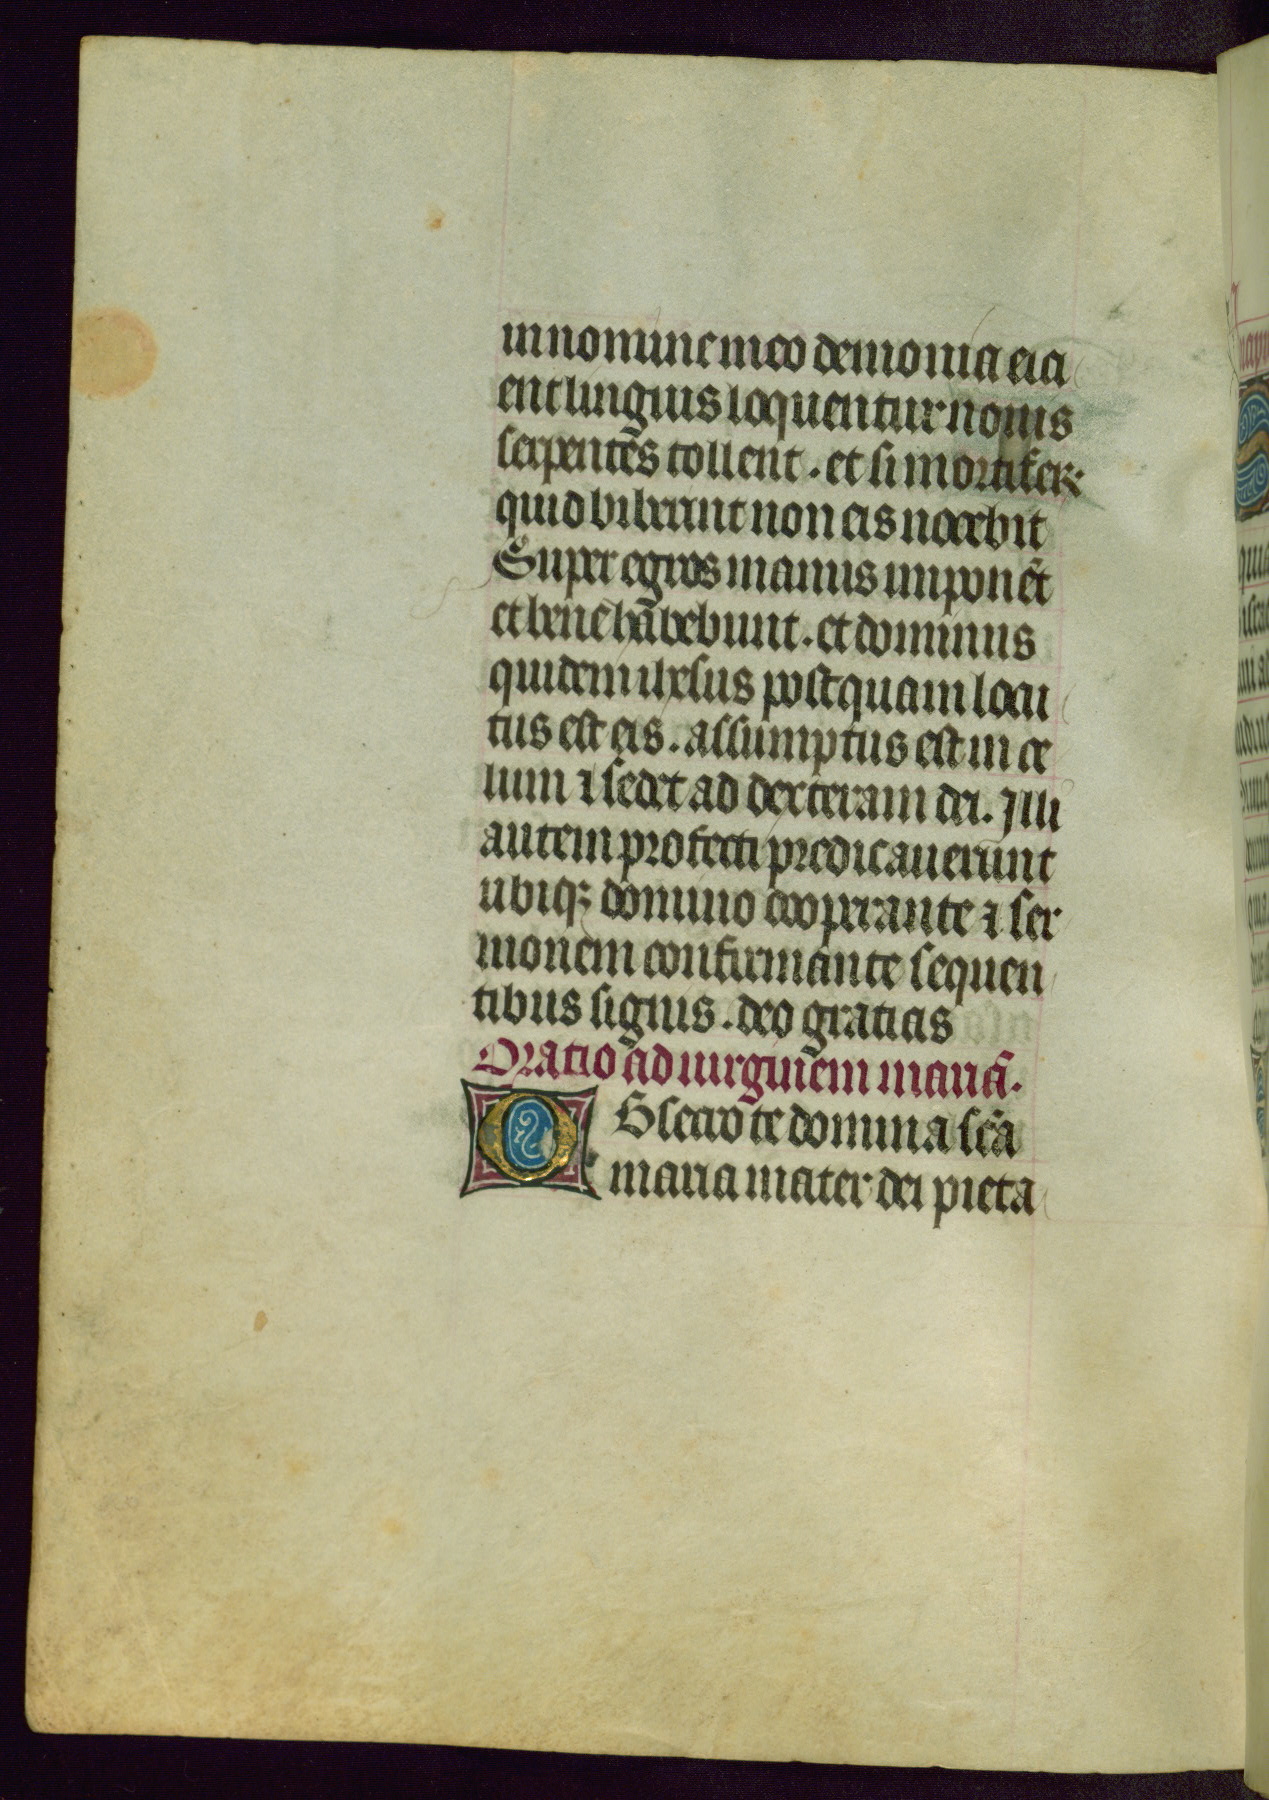 in nomine meo demonia eici
ent linguis loquentur nouis
serpentēs tollent . et si mortifer
quid biberint non eis nocebit
Super egros manus imponēt
et bene hābebunt . et dominus
quidem ihesus postquam locu
tus est eis . assumptus est in ce
lum ⁊ sedet ad dexteram dei . Illi
autem profecti predicauerunt
ubiqꝫ domino cooperante ⁊ ser
monem confirmante sequen
tibus signis . deo gratias
Oratio ad uirginem mariā .
OBsecro te domina sc̄a
maria mater dei pieta